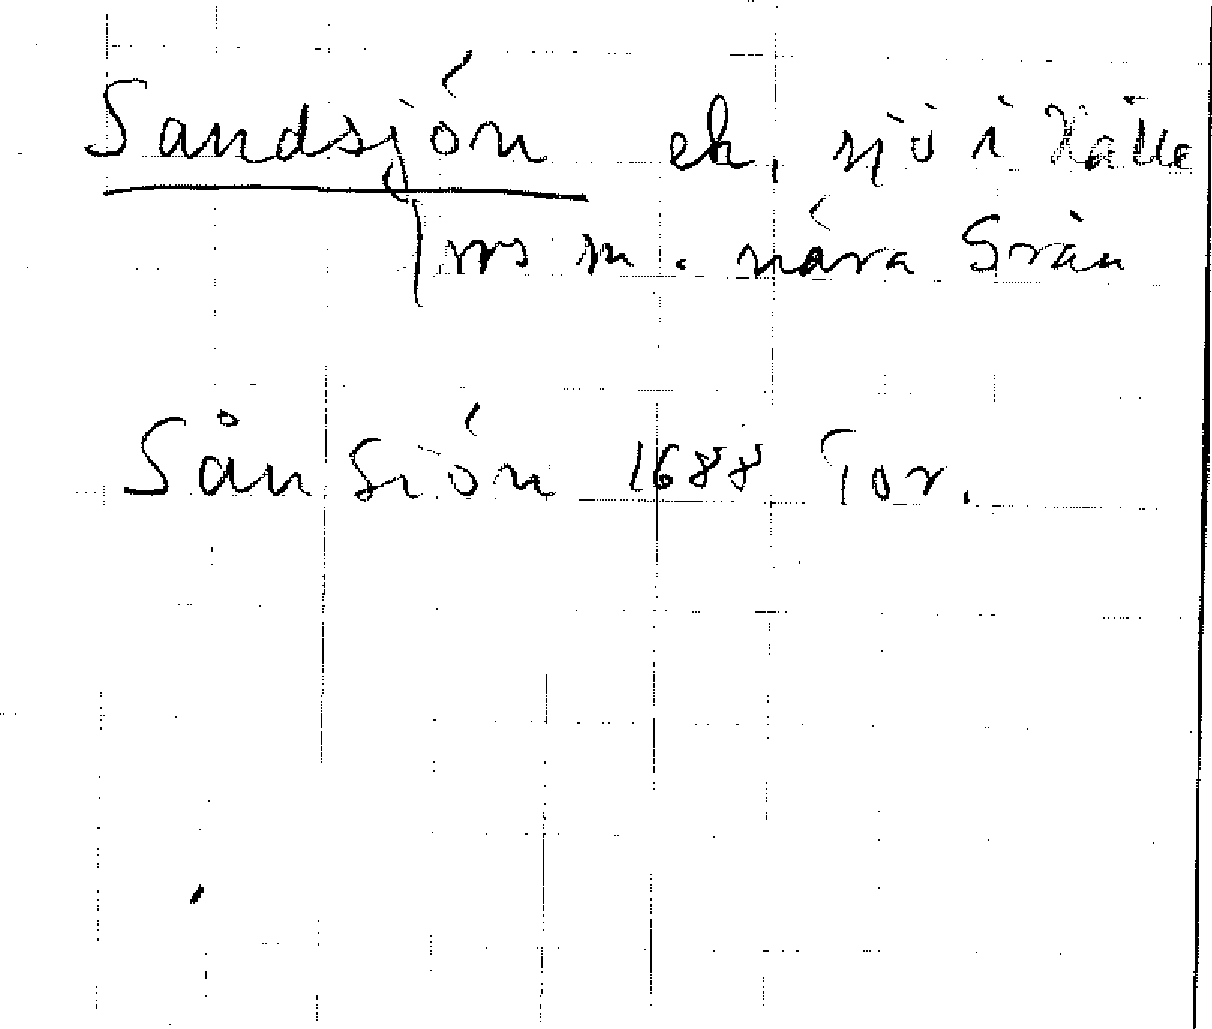 Sandsjön ek, sjö i Källe
frs sn. nära Svän
Sån Siön 1688 Tor.